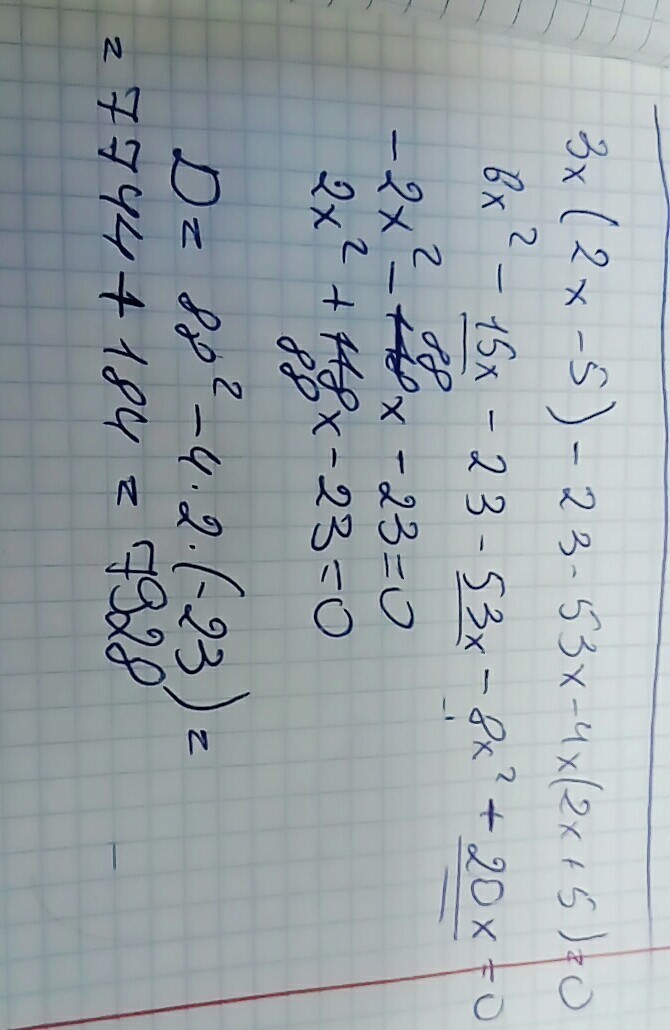 3x(2x-5)-23-53x-4x(2x+5)=0
6x²-15x-23-53x-8x²+20x=0
-2x²-88x-23=0
2x²+88x-23=0
D=88²-4·2·(-23)=
=7744+184=7928